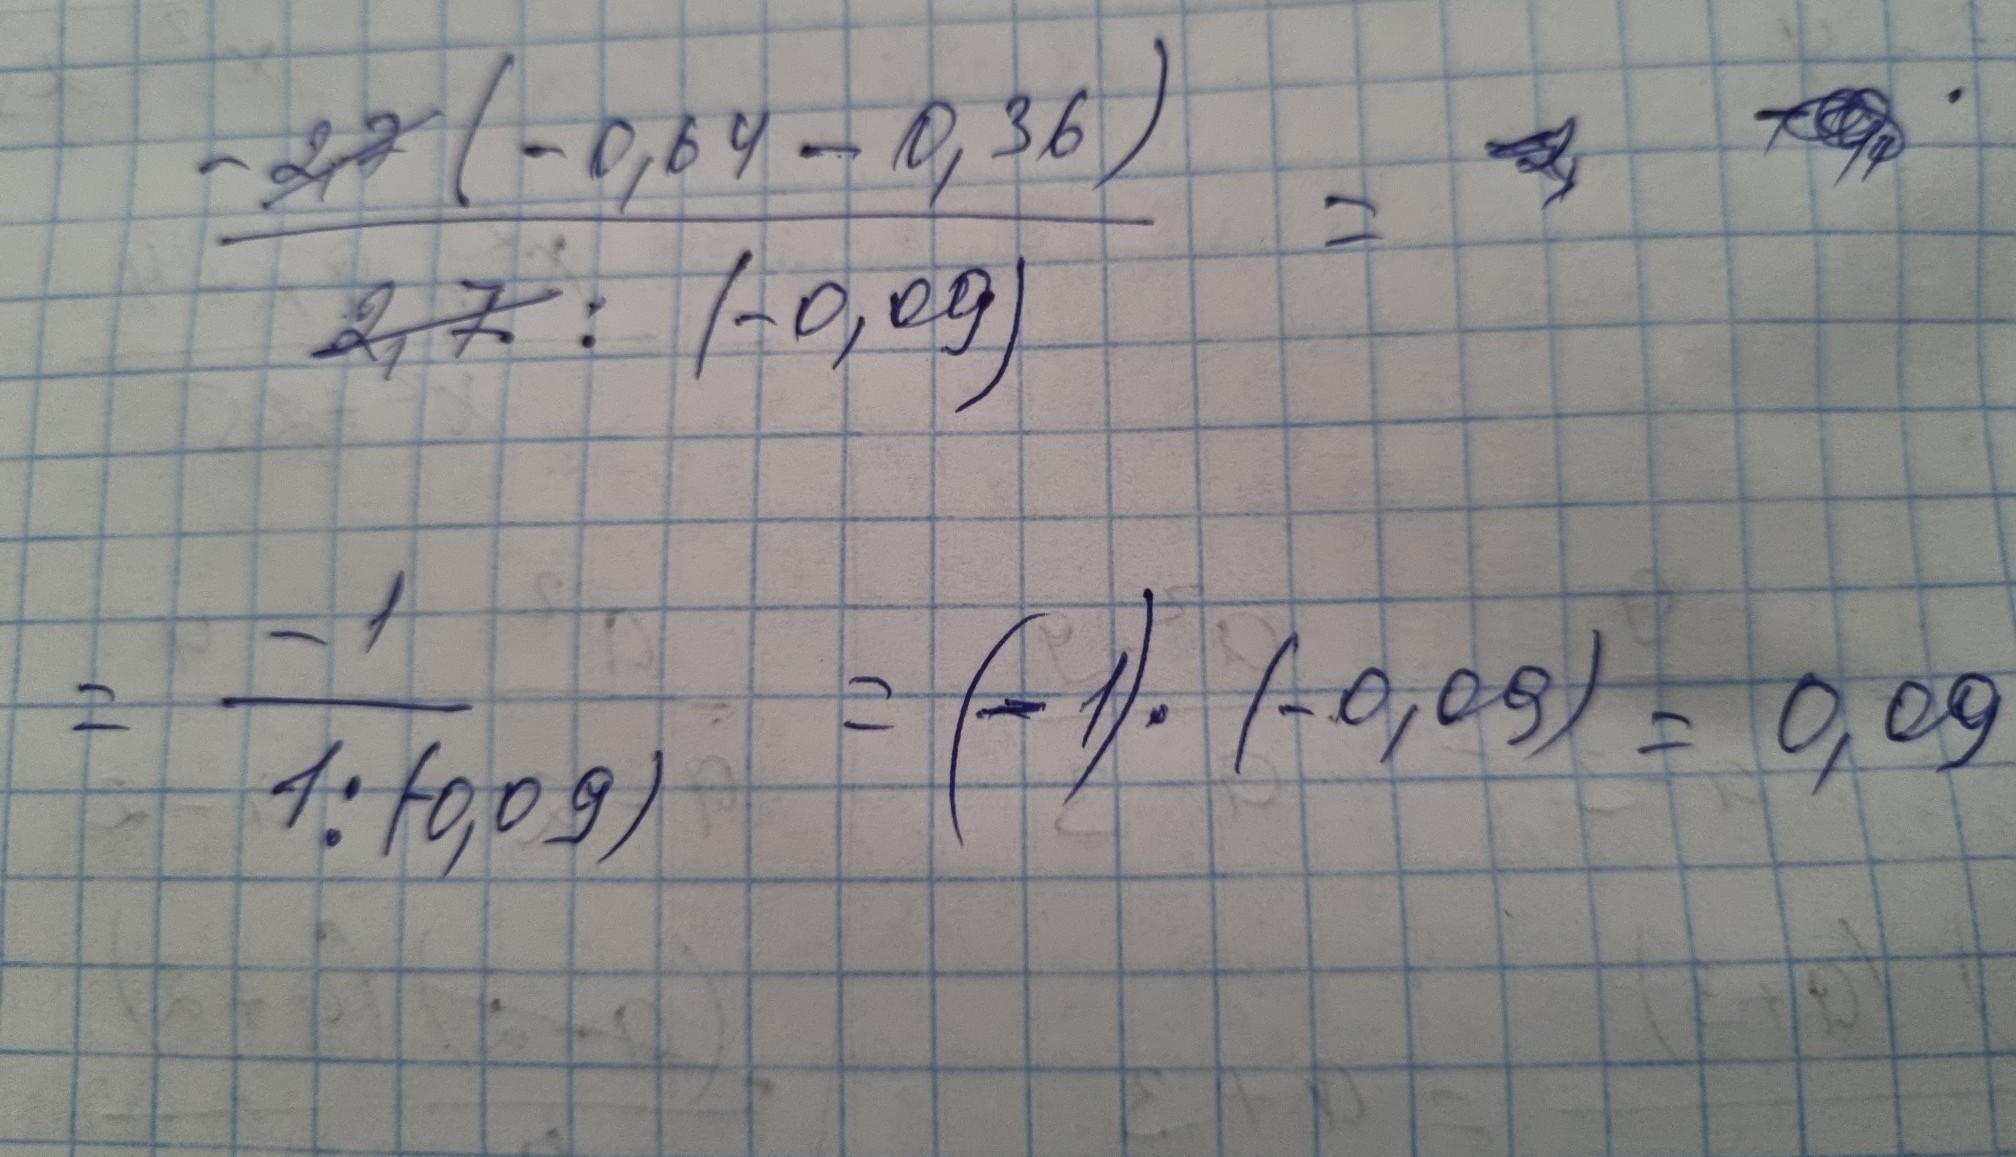 -2,7 (-0,64 - 0,36)
2,7 : (-0,09)
=
= -1
1:(-0,09)
= (-1) · (-0,09) = 0,09